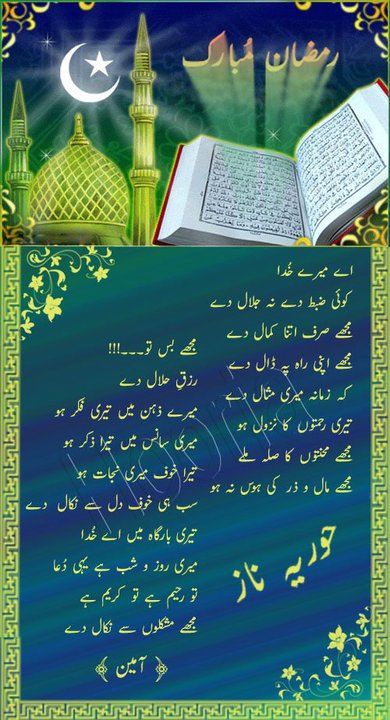 رمضان مُبارک
اے میرے خُدا
کوئی ضبط دے نہ جلال دے
مجھے صرف اتنا کمال دے
مجھے اپنی راہ پہ ڈال دے
کہ زمانہ میری مثال دے
تیری رحمتوں کا نزول ہو
مجھے محنتوں کا صلہ ملے
مجھے مال و ذر کی ہوس نہ ہو
مجھے بس تو۔۔۔!!!
رزقِ حلال دے
میرے ذہن میں تیری فکر ہو
میری سانس میں تیرا ذکر ہو
تیرا خوف میری نجات ہو
سب ہی خوف دل سے نکال دے
تیری بارگاہ میں اے خُدا
میری روز و شب ہے یہی دُعا
تو رحیم ہے تو کریم ہے
مجھے مشکلوں سے نکال دے
﴿ آمین ﴾
حوریہ ناز